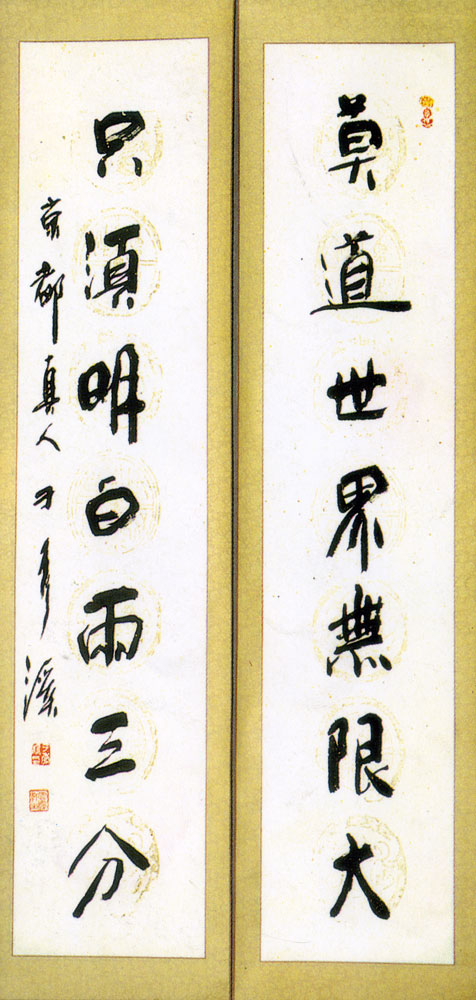 莫道世界無限大
只須明白兩三分
京都真人